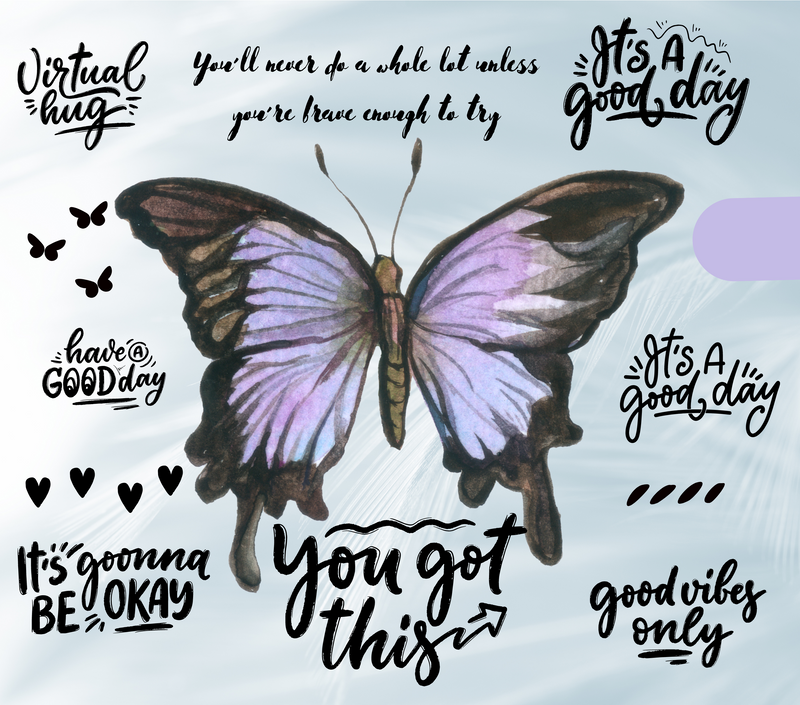 Virtual
hug
You'll never do a whole lot unless
you're brave enough to try
It's A
good day
have a
GOOD day
It's A
good day
It's goonna
BE OKAY
You got
this
good vibes
only